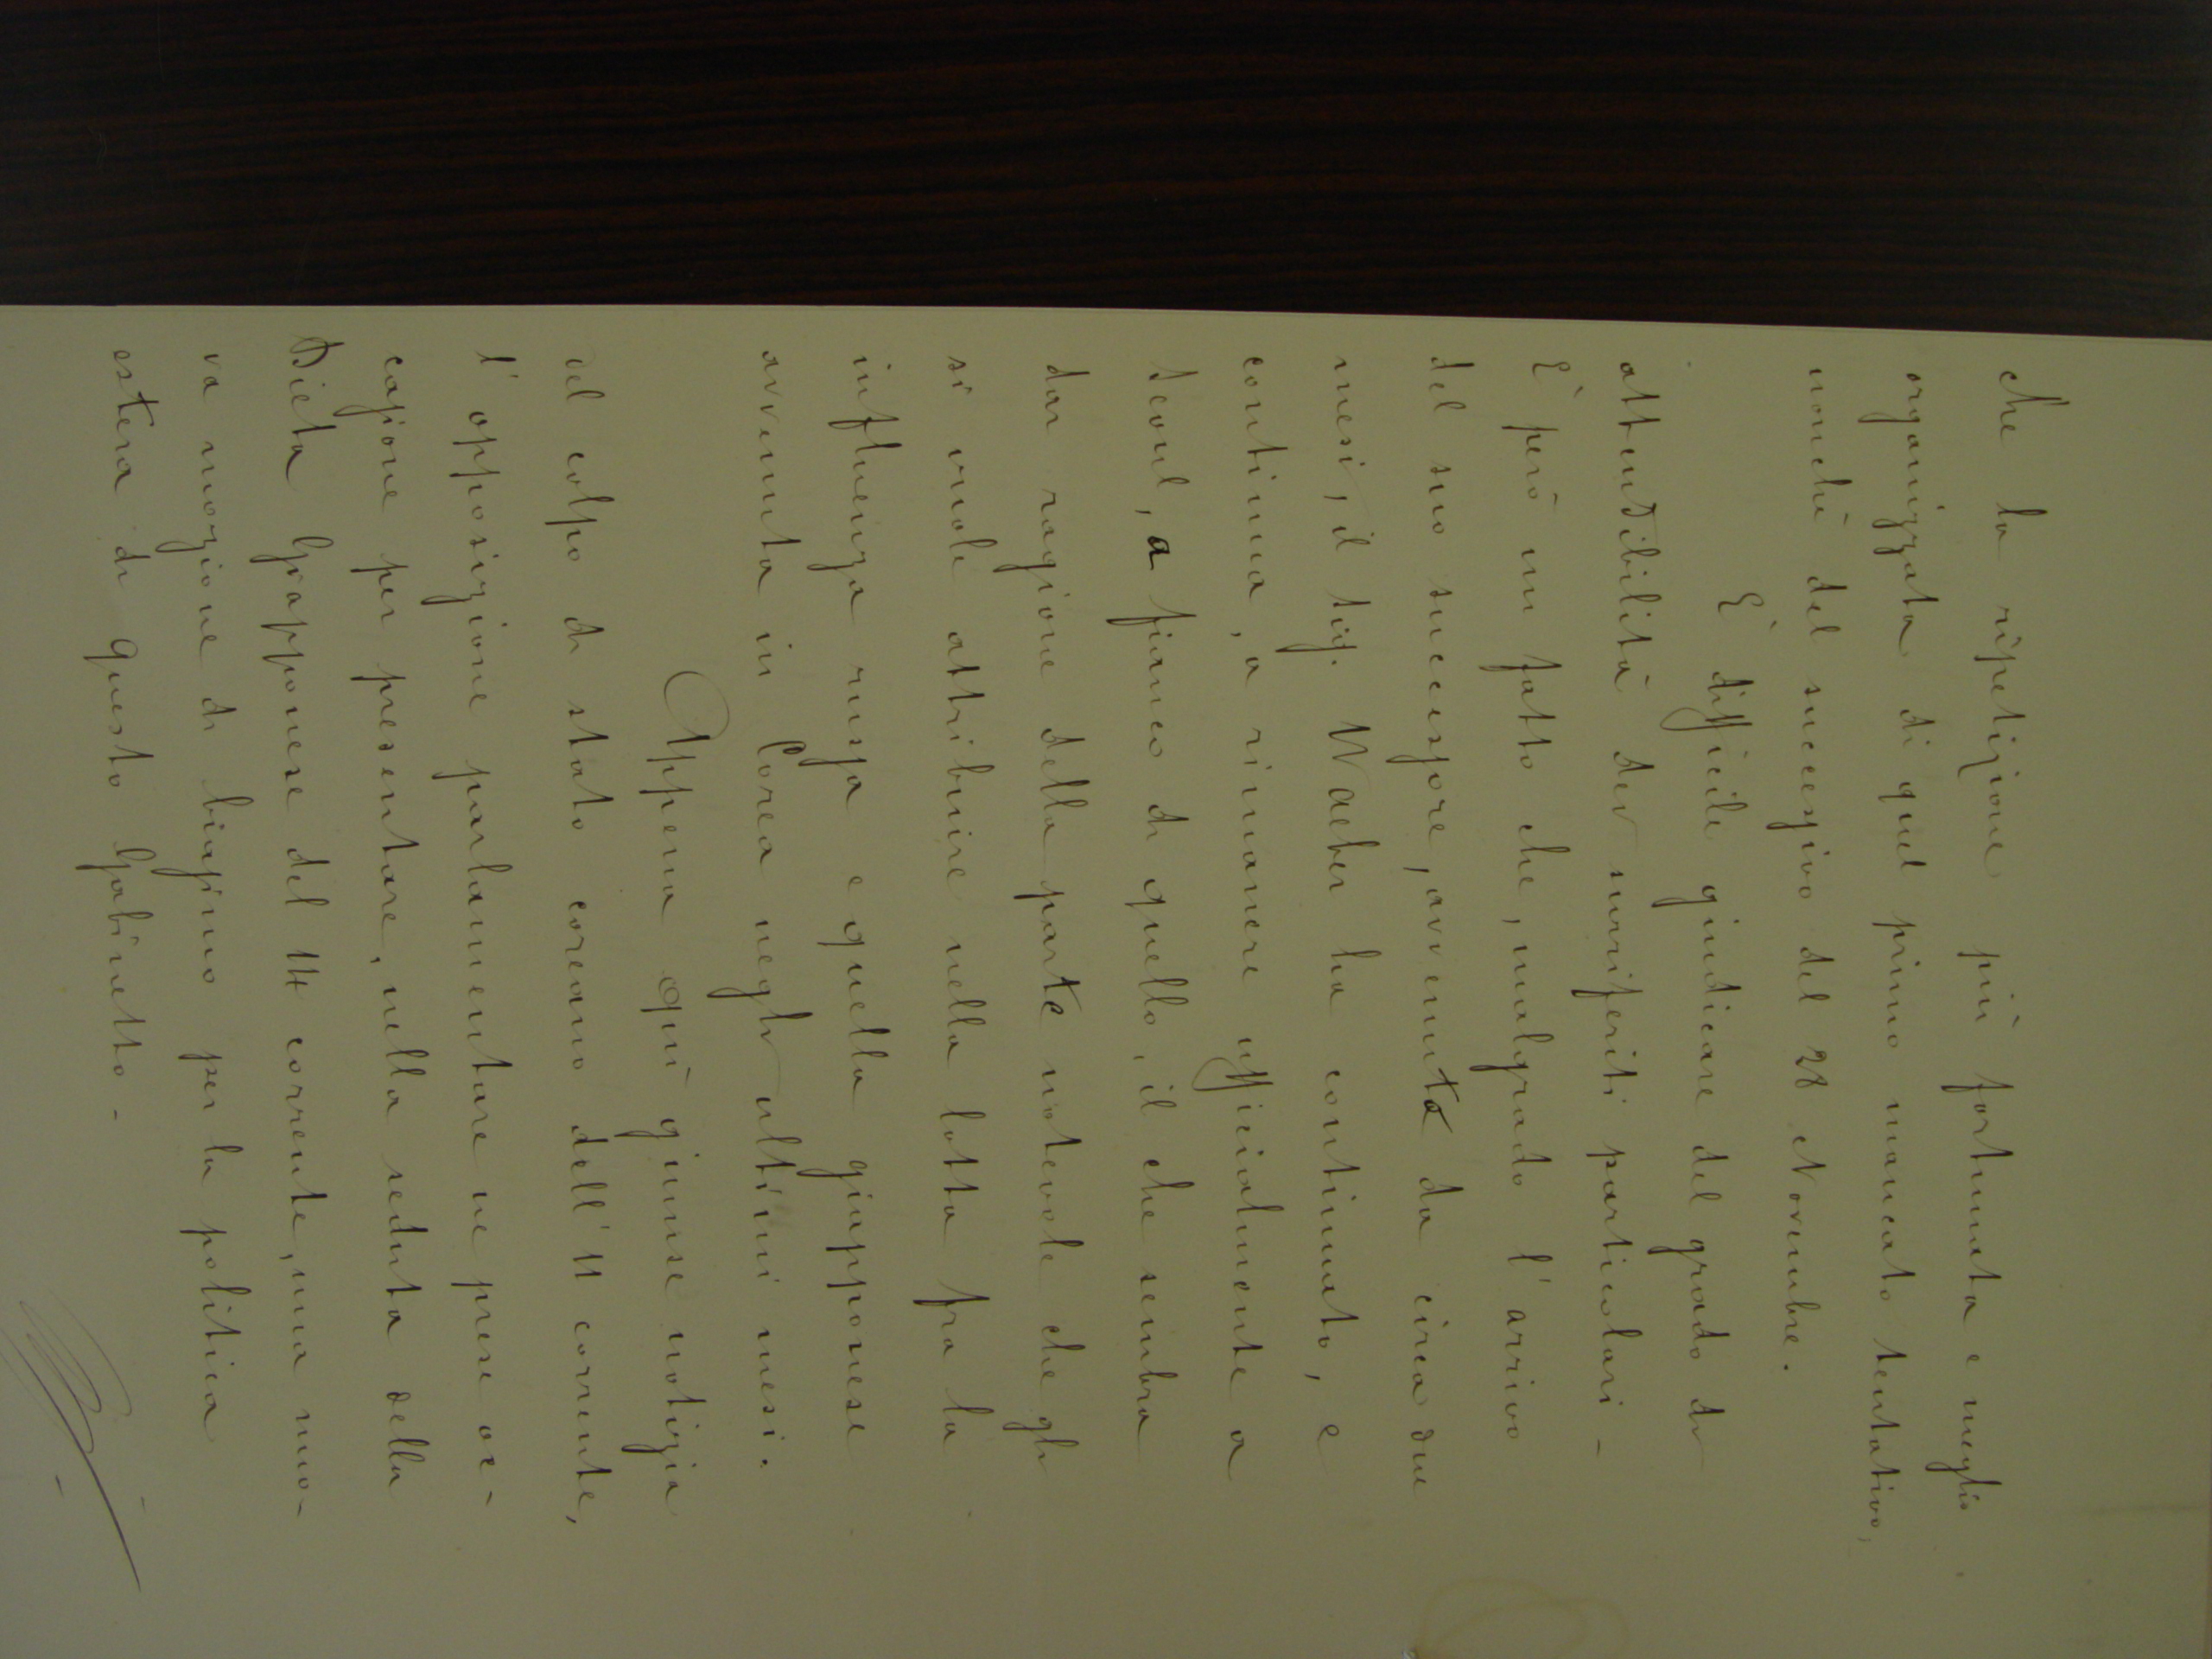 che la ripetizione più fortunata e meglio
organizzata di quel primo mancato tentativo,
nonchè del successivo del 28 Novembre.
È difficile giudicare del grado di
attendibilità dei surriferiti particolari -
È però un fatto che, malgrado l'arrivo
del suo successore, avvenuto da circa due
mesi, il Sig. Waeber ha continuato, e
continua, a rimanere ufficialmente a
Seoul, a fianco di quello, il che sembra
dar ragione della parte notevole che gli
si vuole attribuire nella lotta fra la
influenza russa e quella giapponese
avvenuta in Corea negli ultimi mesi.
Appena qui giunse notizia
del colpo di stato coreano dell'11 corrente,
l'opposizione parlamentare ne prese oc-
cagione per presentare, nella seduta della
Dieta Giapponese del 14 corrente, una nuo-
va mozione di biasimo per la politica
estera di questo Gabinetto -